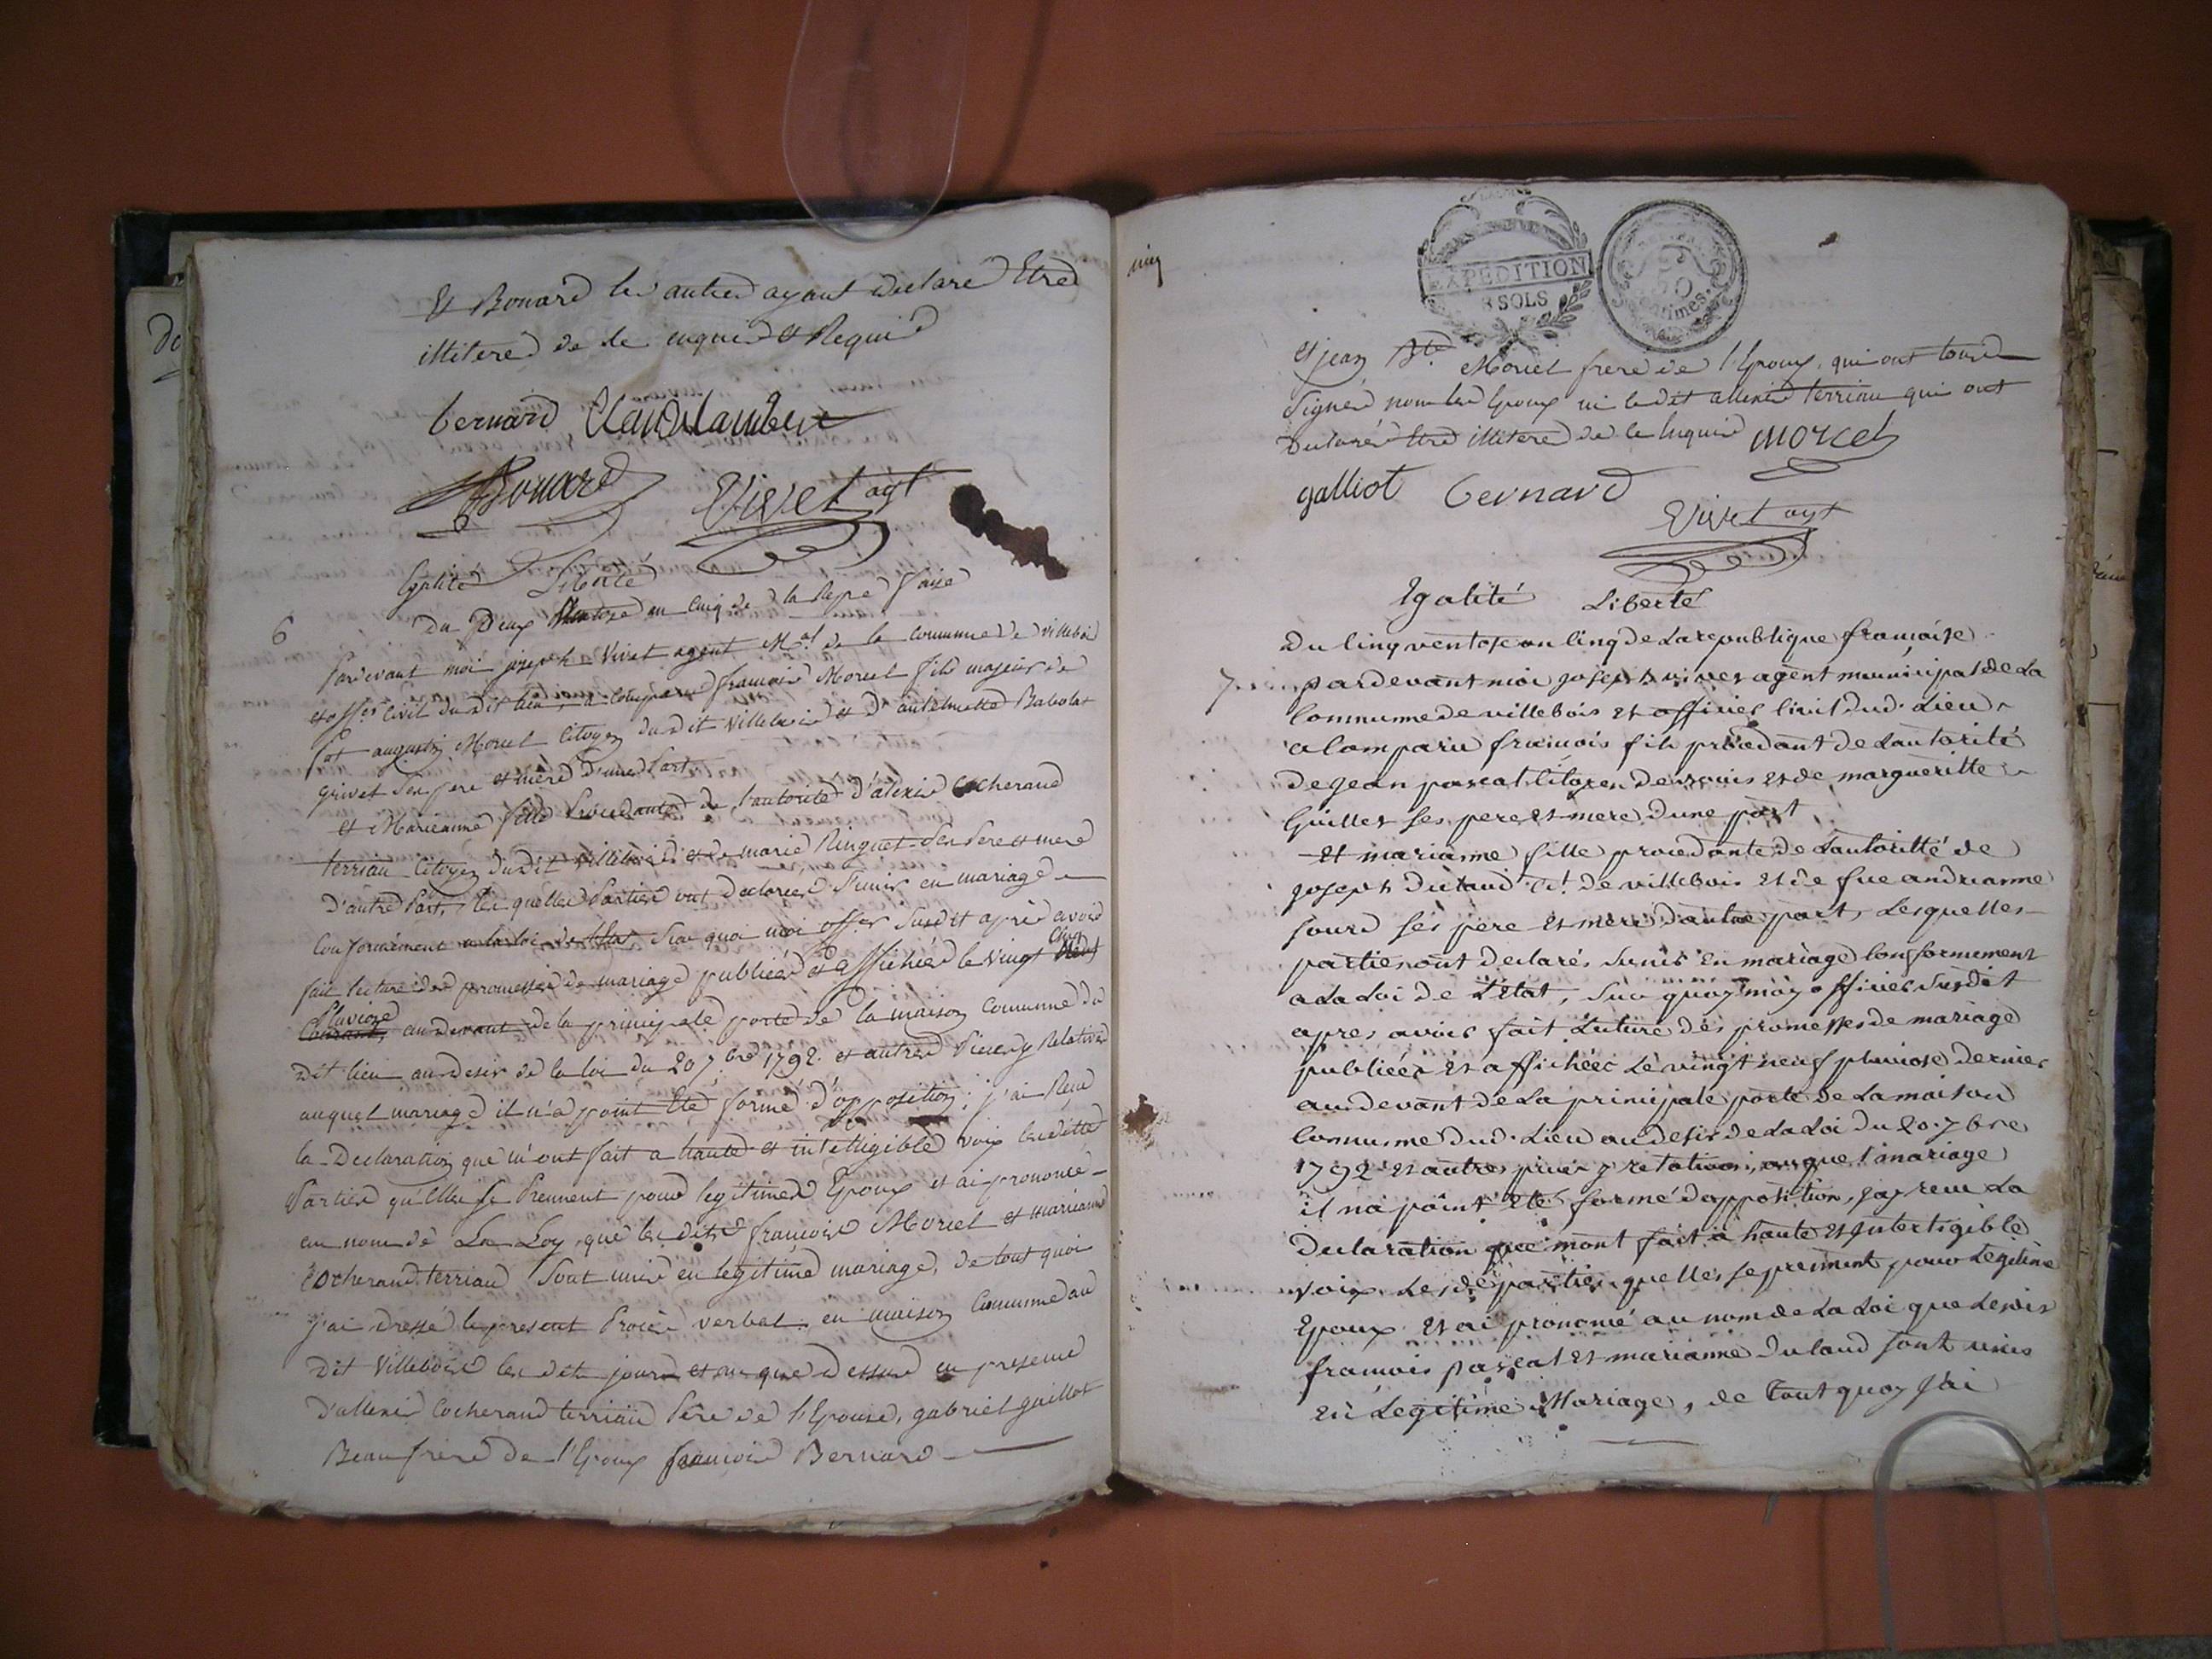 Et Bouard les autres ayant declaré Etre
illiteres de ce enquis et Requis
bernard Claudelambert
Bouard Vivet agt
Egalité Liberté
6
Du Deux Ventose an Cinq de la Repe faise
Pardevant moi joseph Vivet agent Mal de la commune de villebois
et offer Civil du dit lieu, a comparu francois Morel fils majeur de
augustin Morel Citoyen du dit Villebois et d'antelmette Babolat
grivet ses pere et mere d'une Part
et Marieanne fille Procedante de l'autorité d'alexis Cocherand
terrian Citoyen du dit Villebois et de marie Ringuet ses Pere et mere
d'autre Part, les quelles Parties ont declarées S'unir en mariage
Conformément a la loi de l'Etat, Sur quoi moi offer Susdit après avoir
fait lecture des promesses de mariage publiées et affichées le Vingt cinq
Pluviose
au devant de la principale porte de la maison commune du
dit lieu au desir de la loi du 20 7bre 1792. et autres Pieces y Relatives
auquel mariage il n'a point Eté formé d'opposition; j'ai Recu
la Declaration que m'ont fait a haute et intelligible voix lesdittes
Parties qu'Elles se Prennent pour legitimes Epoux et ai prononcé
au nom de La Loy, que les dits francois Morel et marieanne
Cocherand terriand Sont unis en legitime mariage, de tout quoi
j'ai dressé le present Procès verbal en maison Commune du
dit Villebois les dits jour et an que dessus en presence
d'allexis Cocherand terriau Père de l'Epouse, gabriel gaillot
Beaufrere de l'Epoux francois Bernard
cinq
EXPEDITION
8 SOLS
50
Centimes
et jean Bte Morel frere de l'Epoux, qui ont tous
Signés non les Epoux ni le dit allexis terriau qui ont
Declarés Etre illiteres de ce Enquis morel
galliot bernard
Vivet agt
Egalité Liberté
Du cinq ventose an cinq de la republique francaise
7
pardevant moi joseph vivet agent municipal de La
Commune de villebois et officier civil dud. Lieu
a Comparu francois fils procedant de Lautorité
de jean pascal Citoyen de et de margueritte
Guillet ses pere et mere d'une part
et marianne fille procedante de Lautoritté de
joseph Dulaud Ct. de villebois et de fue andrianne
sourd ses père et mère d'autre part, Lesquelles
parties ont declarés Sunir En mariage conformement
a La Loi de L'etat, Sur quoy moy officier Susdit
apres avoir fait Lecture des promesses de mariage
publiées et affichées Le vingt neuf pluviose dernier
audevant de La principale porte de La maison
Commune dud. Lieu au desir de La Loi du 20. 7bre
1792 et autres pieces y relatives, auquel mariage
il n'a point Eté formé d'opposition, jay receu La
Declaration que m'ont fait à haute et Intelligible
voix Lesd. parties quelles se prennent pour Legitime
Epoux et ai prononcé au nom de La Loi que Lesdis
francois pascal et marianne dulaud sont unis
en Legitime Mariage, de tout quoy J'ai